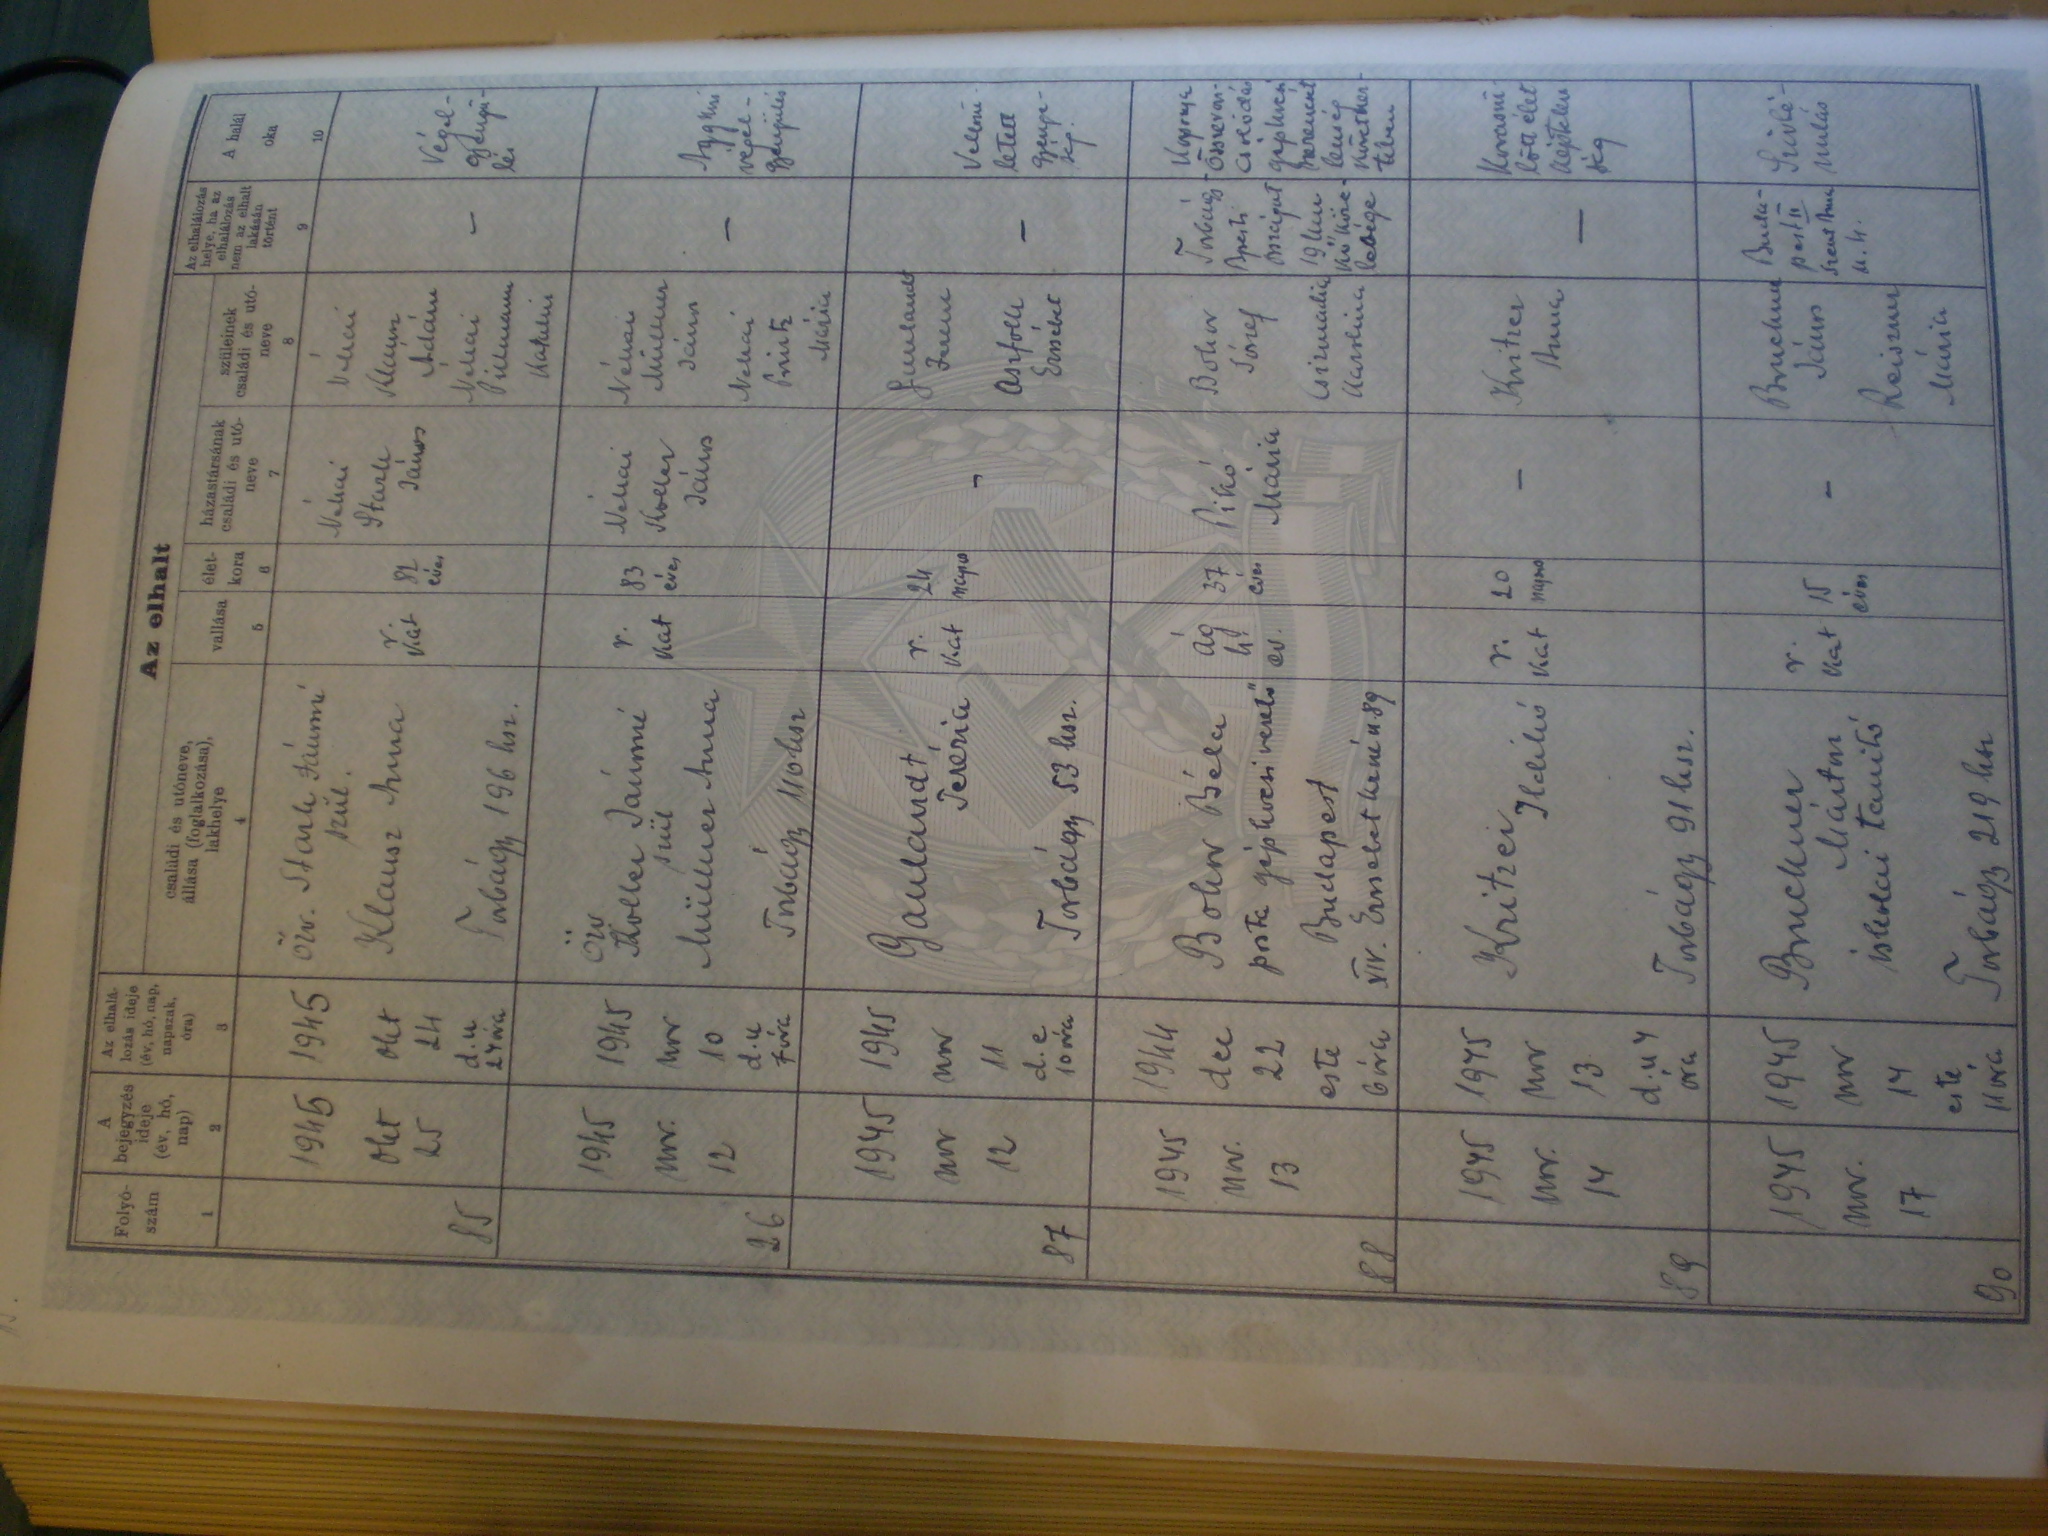 Az elhalt
Folyó-
szám
1
A
bejegyzés
ideje
(év, hó,
nap)
2
Az elhalá-
lozás ideje
(év, hó, nap,
napszak,
óra)
3
családi és utóneve,
állása (foglalkozása),
lakhelye
4
vallása
5
élet-
kora
6
házastársának
családi és utó-
neve
7
szüleinek
családi és utó-
neve
8
Az elhalálozás
helye, ha az
elhalálozás
nem az elhalt
lakásán
történt
9
A halál
oka
10
85
1945
okt
25
1945
okt
24
d.u
24 óra
özv. Stark Jánosné
szül.
Klausz Anna
Torbágy 196 hsz.
r.
kat
82
éves
Néhai
Stark
János
Néhai
Klausz
Ádám
Néhai
Katalin
—
Végel-
gyengü-
lés
26
1945
nov.
12
1945
nov
10
d.u
7 óra
özv
Koller Jánosné
szül
Müllner Anna
Torbágy 110 hsz
r.
kat
83
éves
Néhai
Koller
János
Néhai
Müllner
János
Néhai
Printz
Mária
—
Aggkori
végel-
gyengülés
87
1945
nov
12
1945
nov
11
d.e
10 óra
Gaulandt
Terézia
Torbágy 53 hsz.
r.
kat
24
napos
—
Gaulandt
Ferenc
Erzsébet
—
Velszü-
letett
gyenge-
ség.
88
1945
nov.
13
1944
dec
22
este
6 óra
Bohor Béla
posta gépkocsivezető
Budapest
XIV. Erzsébet királyné u 89
ág
h.
ev.
37
éves
Pikó
Mária
Bohor
József
Csizmadia
Karolina
Torbágy-
országút
19 km
kő köze-
lébe
Koponya
összeron-
csolódás
gépkocsi
szerencsét-
lenség
következ-
tében
89
1945
nov.
14
1945
nov
13
d.u 4
óra
Kritzei
Ildikó
Torbágy 91 hsz.
r.
kat
20
napos
—
Kritzei
Anna
—
Koraszü-
lött élet
képtelen
ség
90
1945
nov.
17
1945
nov
14
este
11 óra
Bruckner
Márton
iskolai tanuló
Torbágy 219 hsz
r.
kat
15
éves
—
Bruckner
János
Reiszner
Mária
Buda-
pest II
Szívbé-
nulás